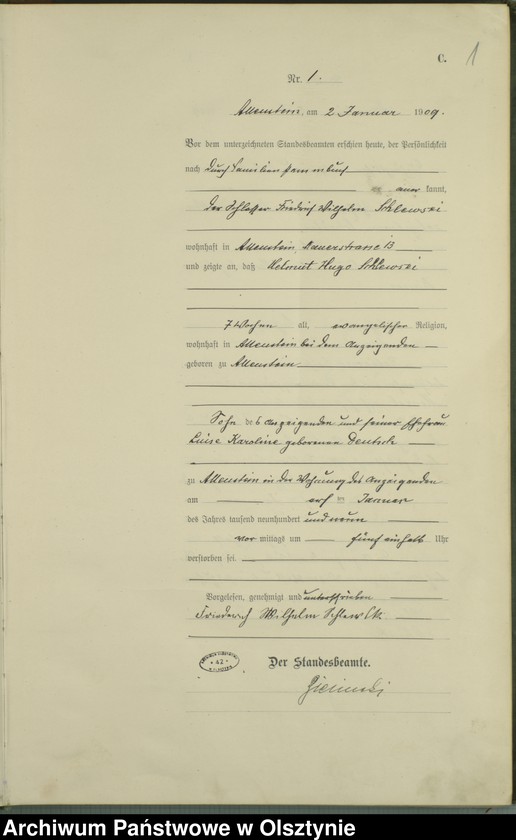 C.
1
Nr. 1.
Allenstein, am 2 Januar 1909.
Vor dem unterzeichneten Standesbeamten erschien heute, der Persönlichkeit
nach durch Familienstammbuch
aner kannt,
der Schlosser Friedrich Wilhelm
wohnhaft in Allenstein, Mauerstrasse 13
und zeigte an, daß Helmut Hugo
7 Wochen alt, evangelischer Religion,
wohnhaft in Allenstein bei dem Anzeigenden
geboren zu Allenstein
Sohn des Anzeigenden und seiner Ehefrau
Luise Karoline geborenen Deutsch
zu Allenstein in der Wohnung des Anzeigenden
am ersten Januar
des Jahres tausend neunhundert und neun
vor mittags um fünf einhalb Uhr
verstorben sei.
Vorgelesen, genehmigt und unterschrieben
Wilhelm
Der Standesbeamte.
Archiwum Państwowe w Olsztynie